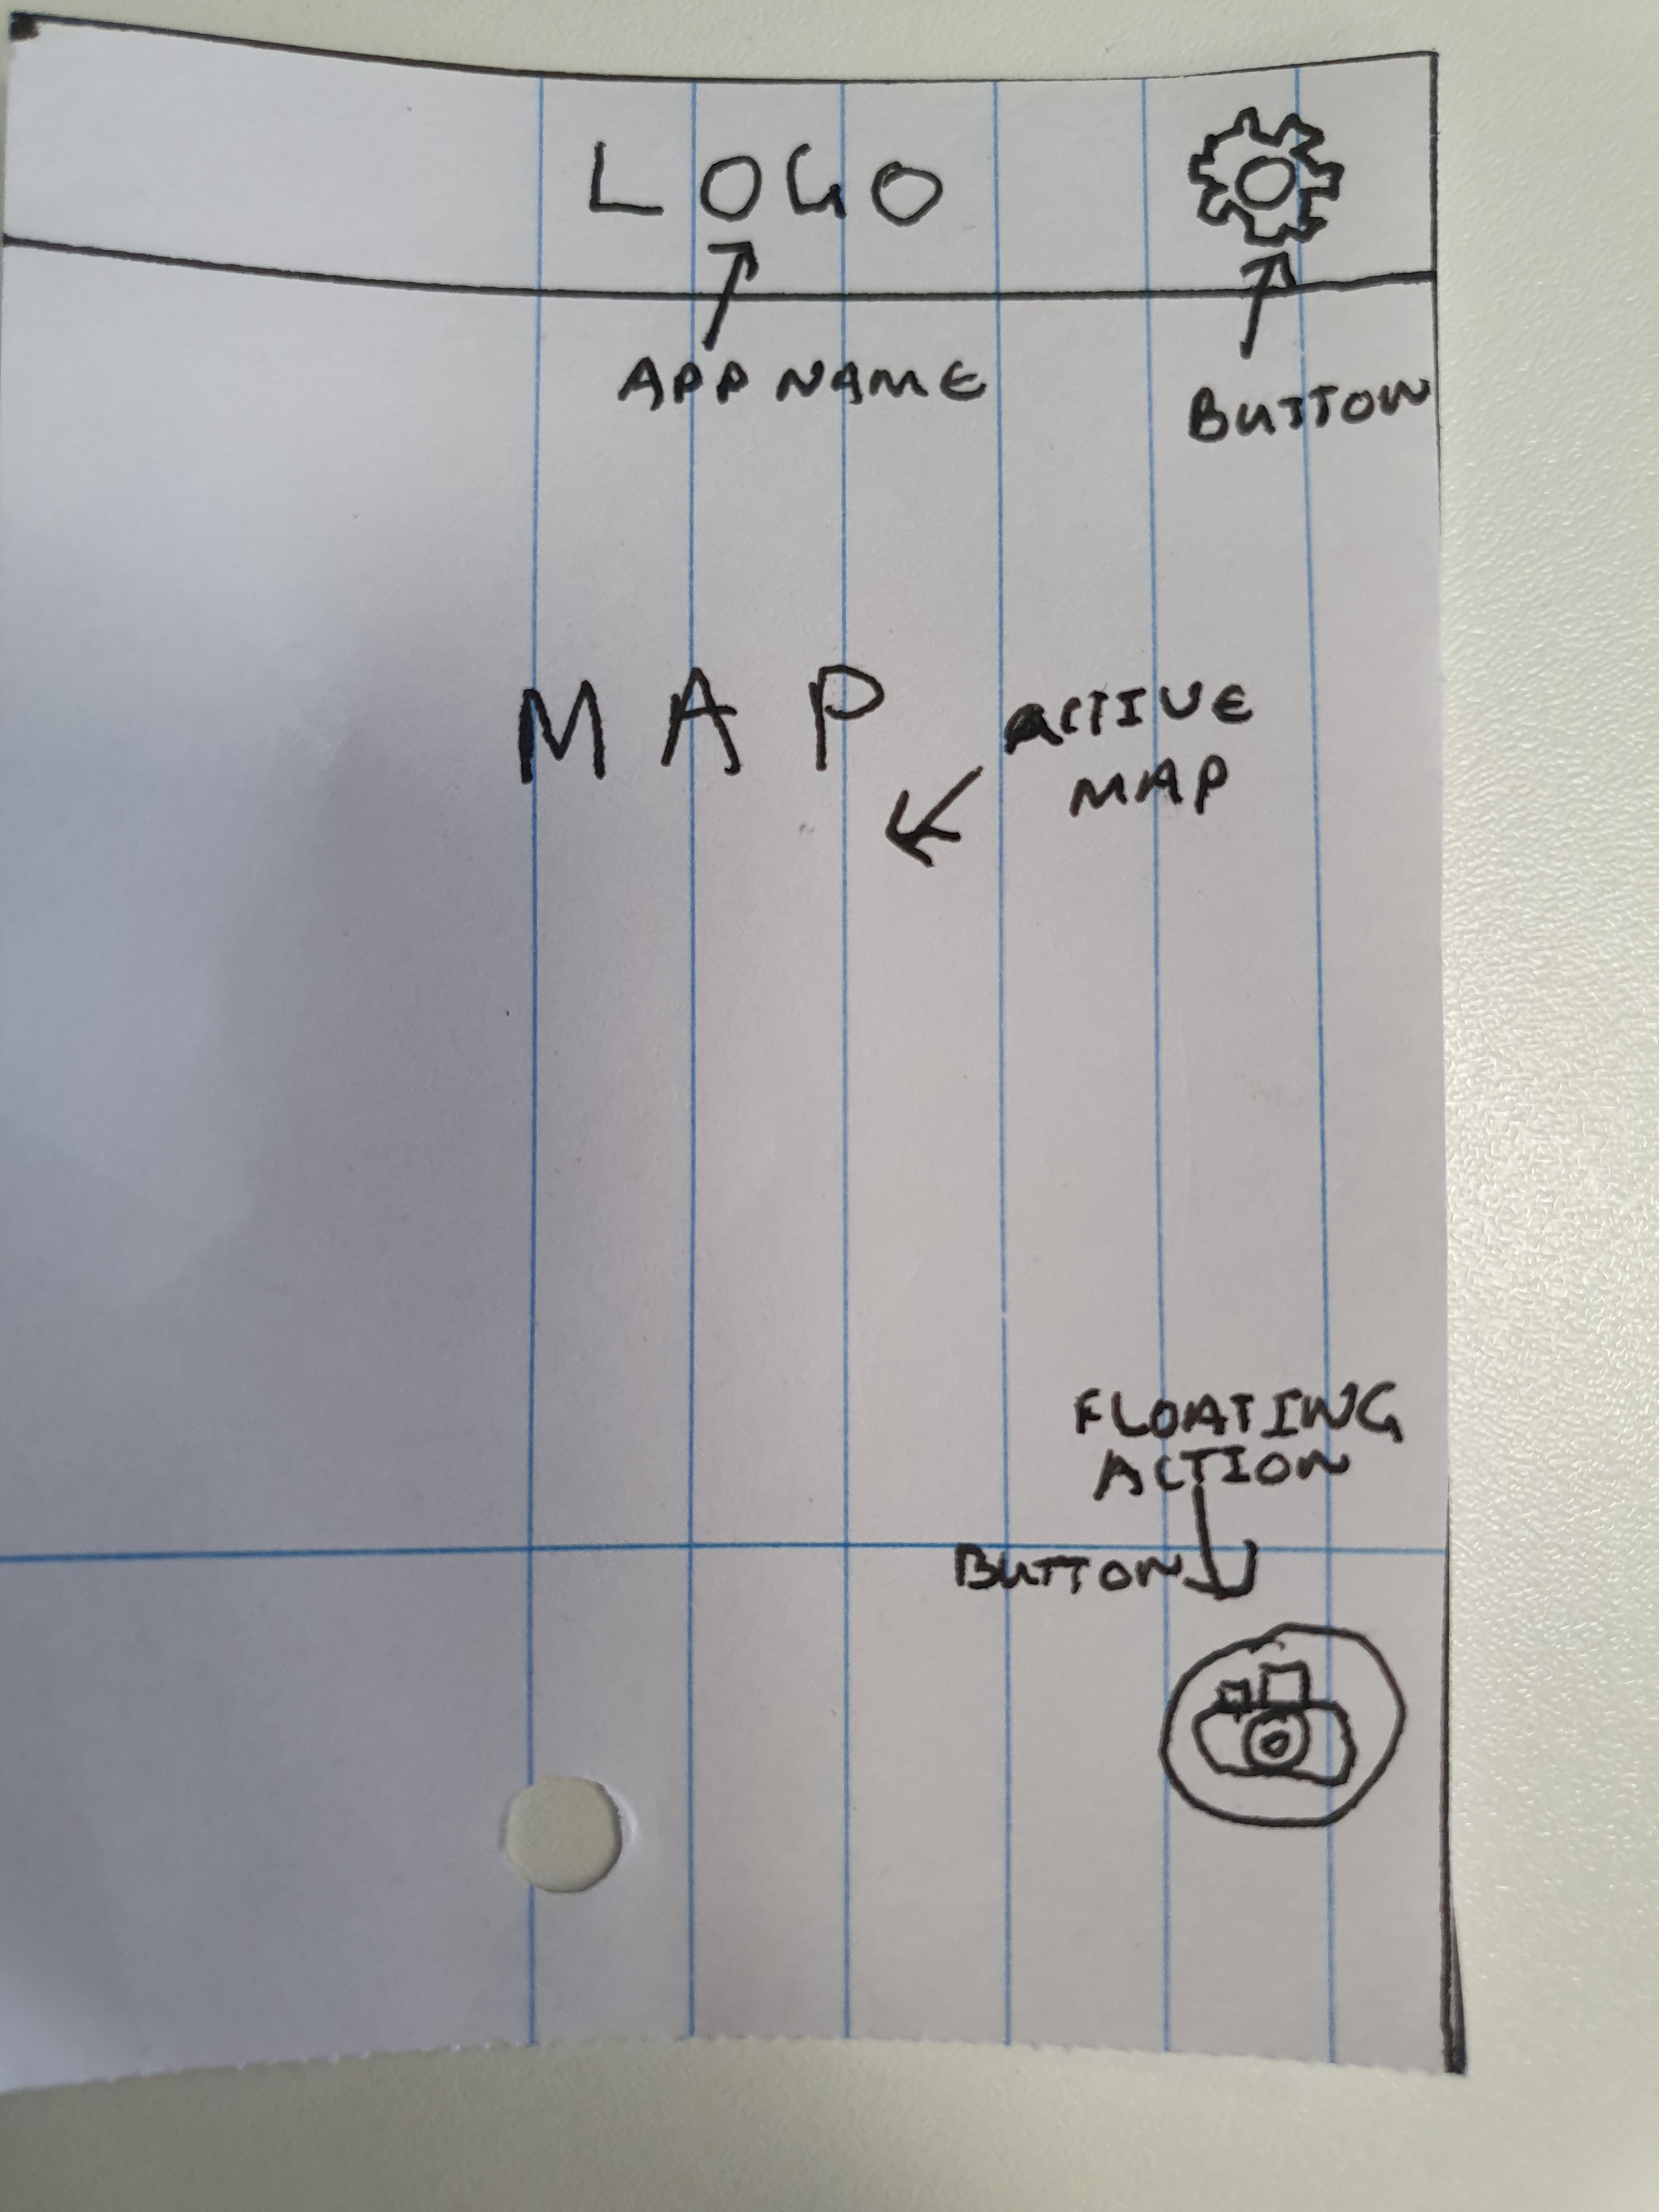 LOGO
APP NAME
BUTTON
MAP
ACTIVE
MAP
FLOATING
ACTION
BUTTON